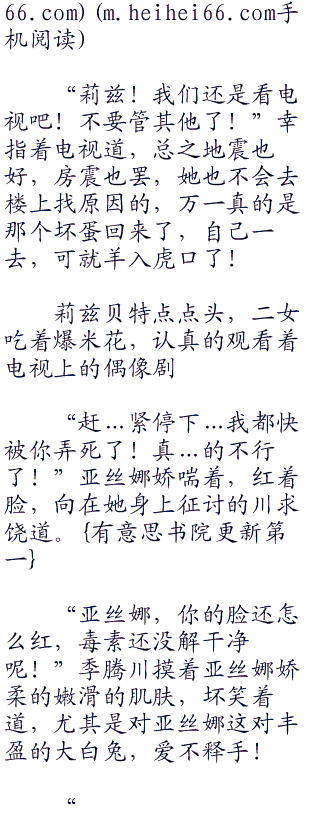 66.com)(m.heihei66.com手
机阅读)
“莉兹！我们还是看电
视吧！不要管其他了！”幸
指着电视道，总之地震也
好，房震也罢，她也不会去
楼上找原因的，万一真的是
那个坏蛋回来了，自己一
去，可就羊入虎口了！
莉兹贝特点点头，二女
吃着爆米花，认真的观看着
电视上的偶像剧
“赶…紧停下…我都快
被你弄死了！真…的不行
了！”亚丝娜娇喘着，红着
脸，向在她身上征讨的川求
饶道。{有意思书院更新第
一}
“亚丝娜，你的脸还怎
么红，毒素还没解干净
呢！”季腾川摸着亚丝娜娇
柔的嫩滑的肌肤，坏笑着
道，尤其是对亚丝娜这对丰
盈的大白兔，爱不释手！
“